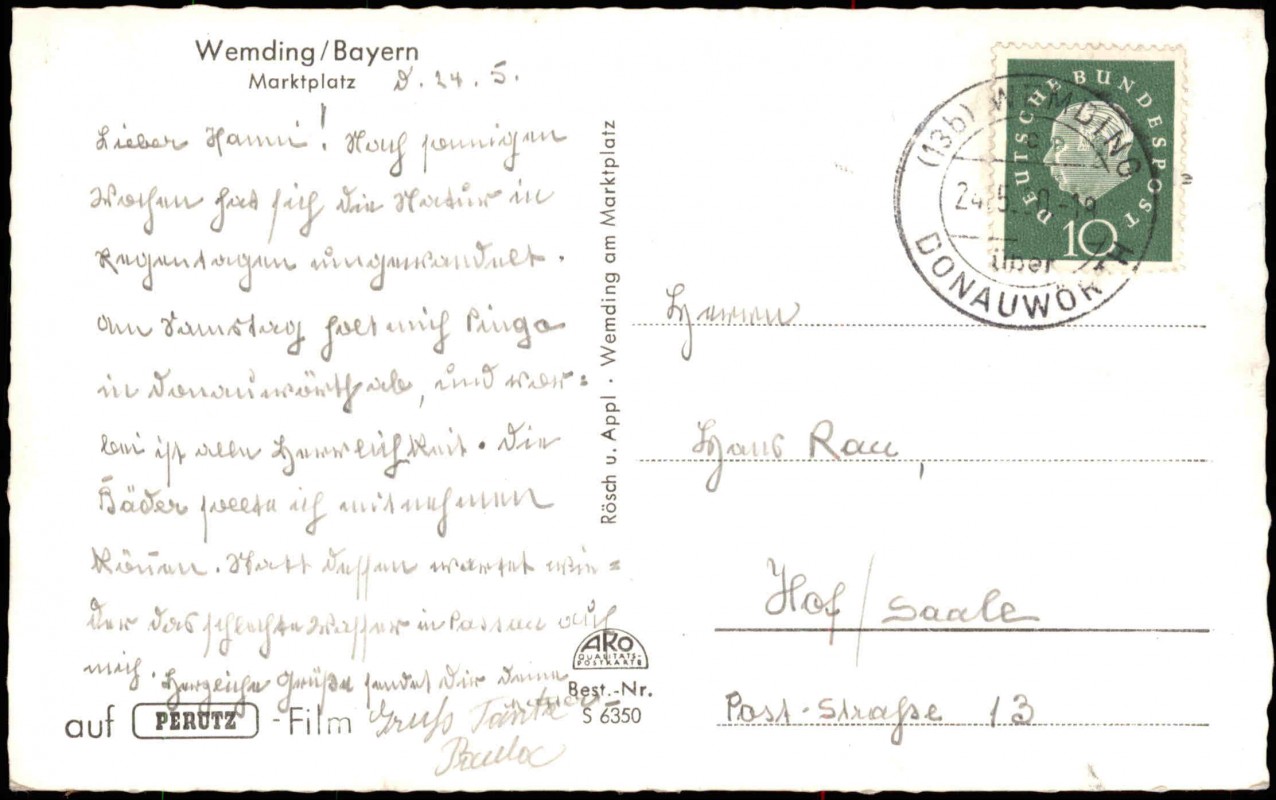 Wemding/Bayern
Marktplatz
d. 24. 5.
Lieber Hanni! Nach sonnigen
Wochen hat sich die Natur in
Regentagen umgewandelt.
Am Samstag holt mich Pinga
in Donauwörth ab, und vor=
bei ist alle Herrlichkeit. Die
Bäder sollte ich mitnehmen
können. Statt dessen wartet wie=
der das schlechte Wasser in Passau auf
mich. Herzliche Grüße sendet Dir Deine
Gruß Tante
Paula
auf PERUTZ -Film
Rösch u. Appl · Wemding am Marktplatz
AKO
QUALITÄTS-
POSTKARTE
Best.-Nr.
S 6350
DEUTSCHE BUNDESPOST
10
(13b) WEMDING
c
24.5.60-19
über
DONAUWÖRTH
Herrn
Hans Rau,
Hof/Saale
Post-Straße 13